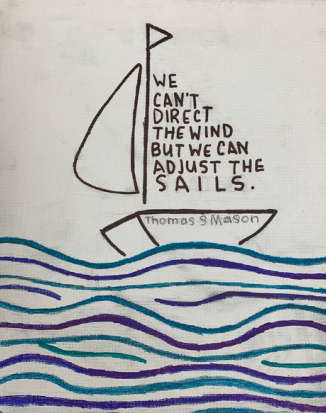 WE
CAN'T
DIRECT
THE WIND
BUT WE CAN
ADJUST THE
SAILS.
Thomas S Mason